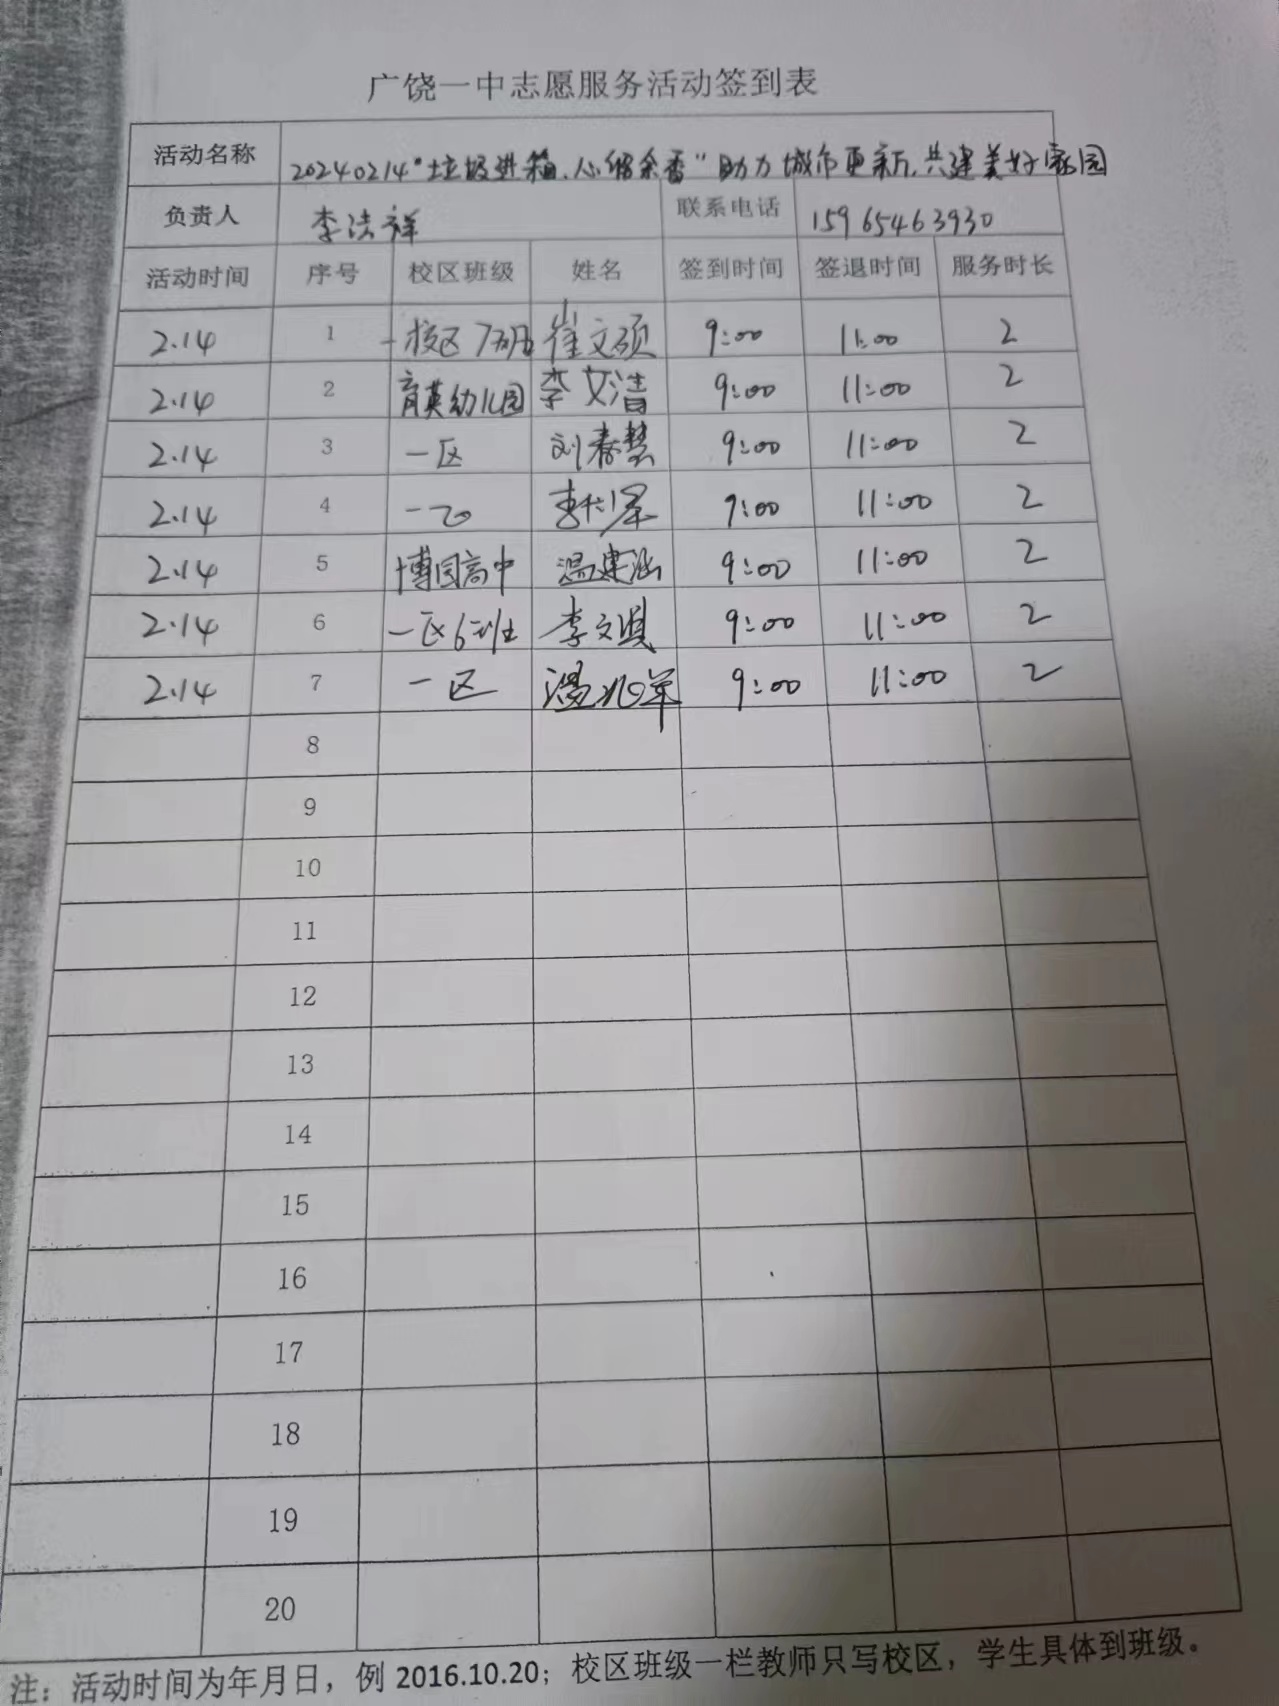 广饶一中志愿服务活动签到表
活动名称 20240214"垃圾进箱、心留余香"助力城市更新,共建美好家园
负责人 李洪祥 联系电话 15965463930
活动时间 序号 校区班级 姓名 签到时间 签退时间 服务时长
2.14 1 一校区7班 崔文硕 9:00 11:00 2
2.14 2 育英幼儿园 李文清 9:00 11:00 2
2.14 3 一区 刘春慧 9:00 11:00 2
2.14 4 一区 李 9:00 11:00 2
2.14 5 博园高中 温建涵 9:00 11:00 2
2.14 6 一区6班 李文淇 9:00 11:00 2
2.14 7 一区 温兆军 9:00 11:00 2
8
9
10
11
12
13
14
15
16
17
18
19
20
注:活动时间为年月日,例 2016.10.20;校区班级一栏教师只写校区,学生具体到班级。